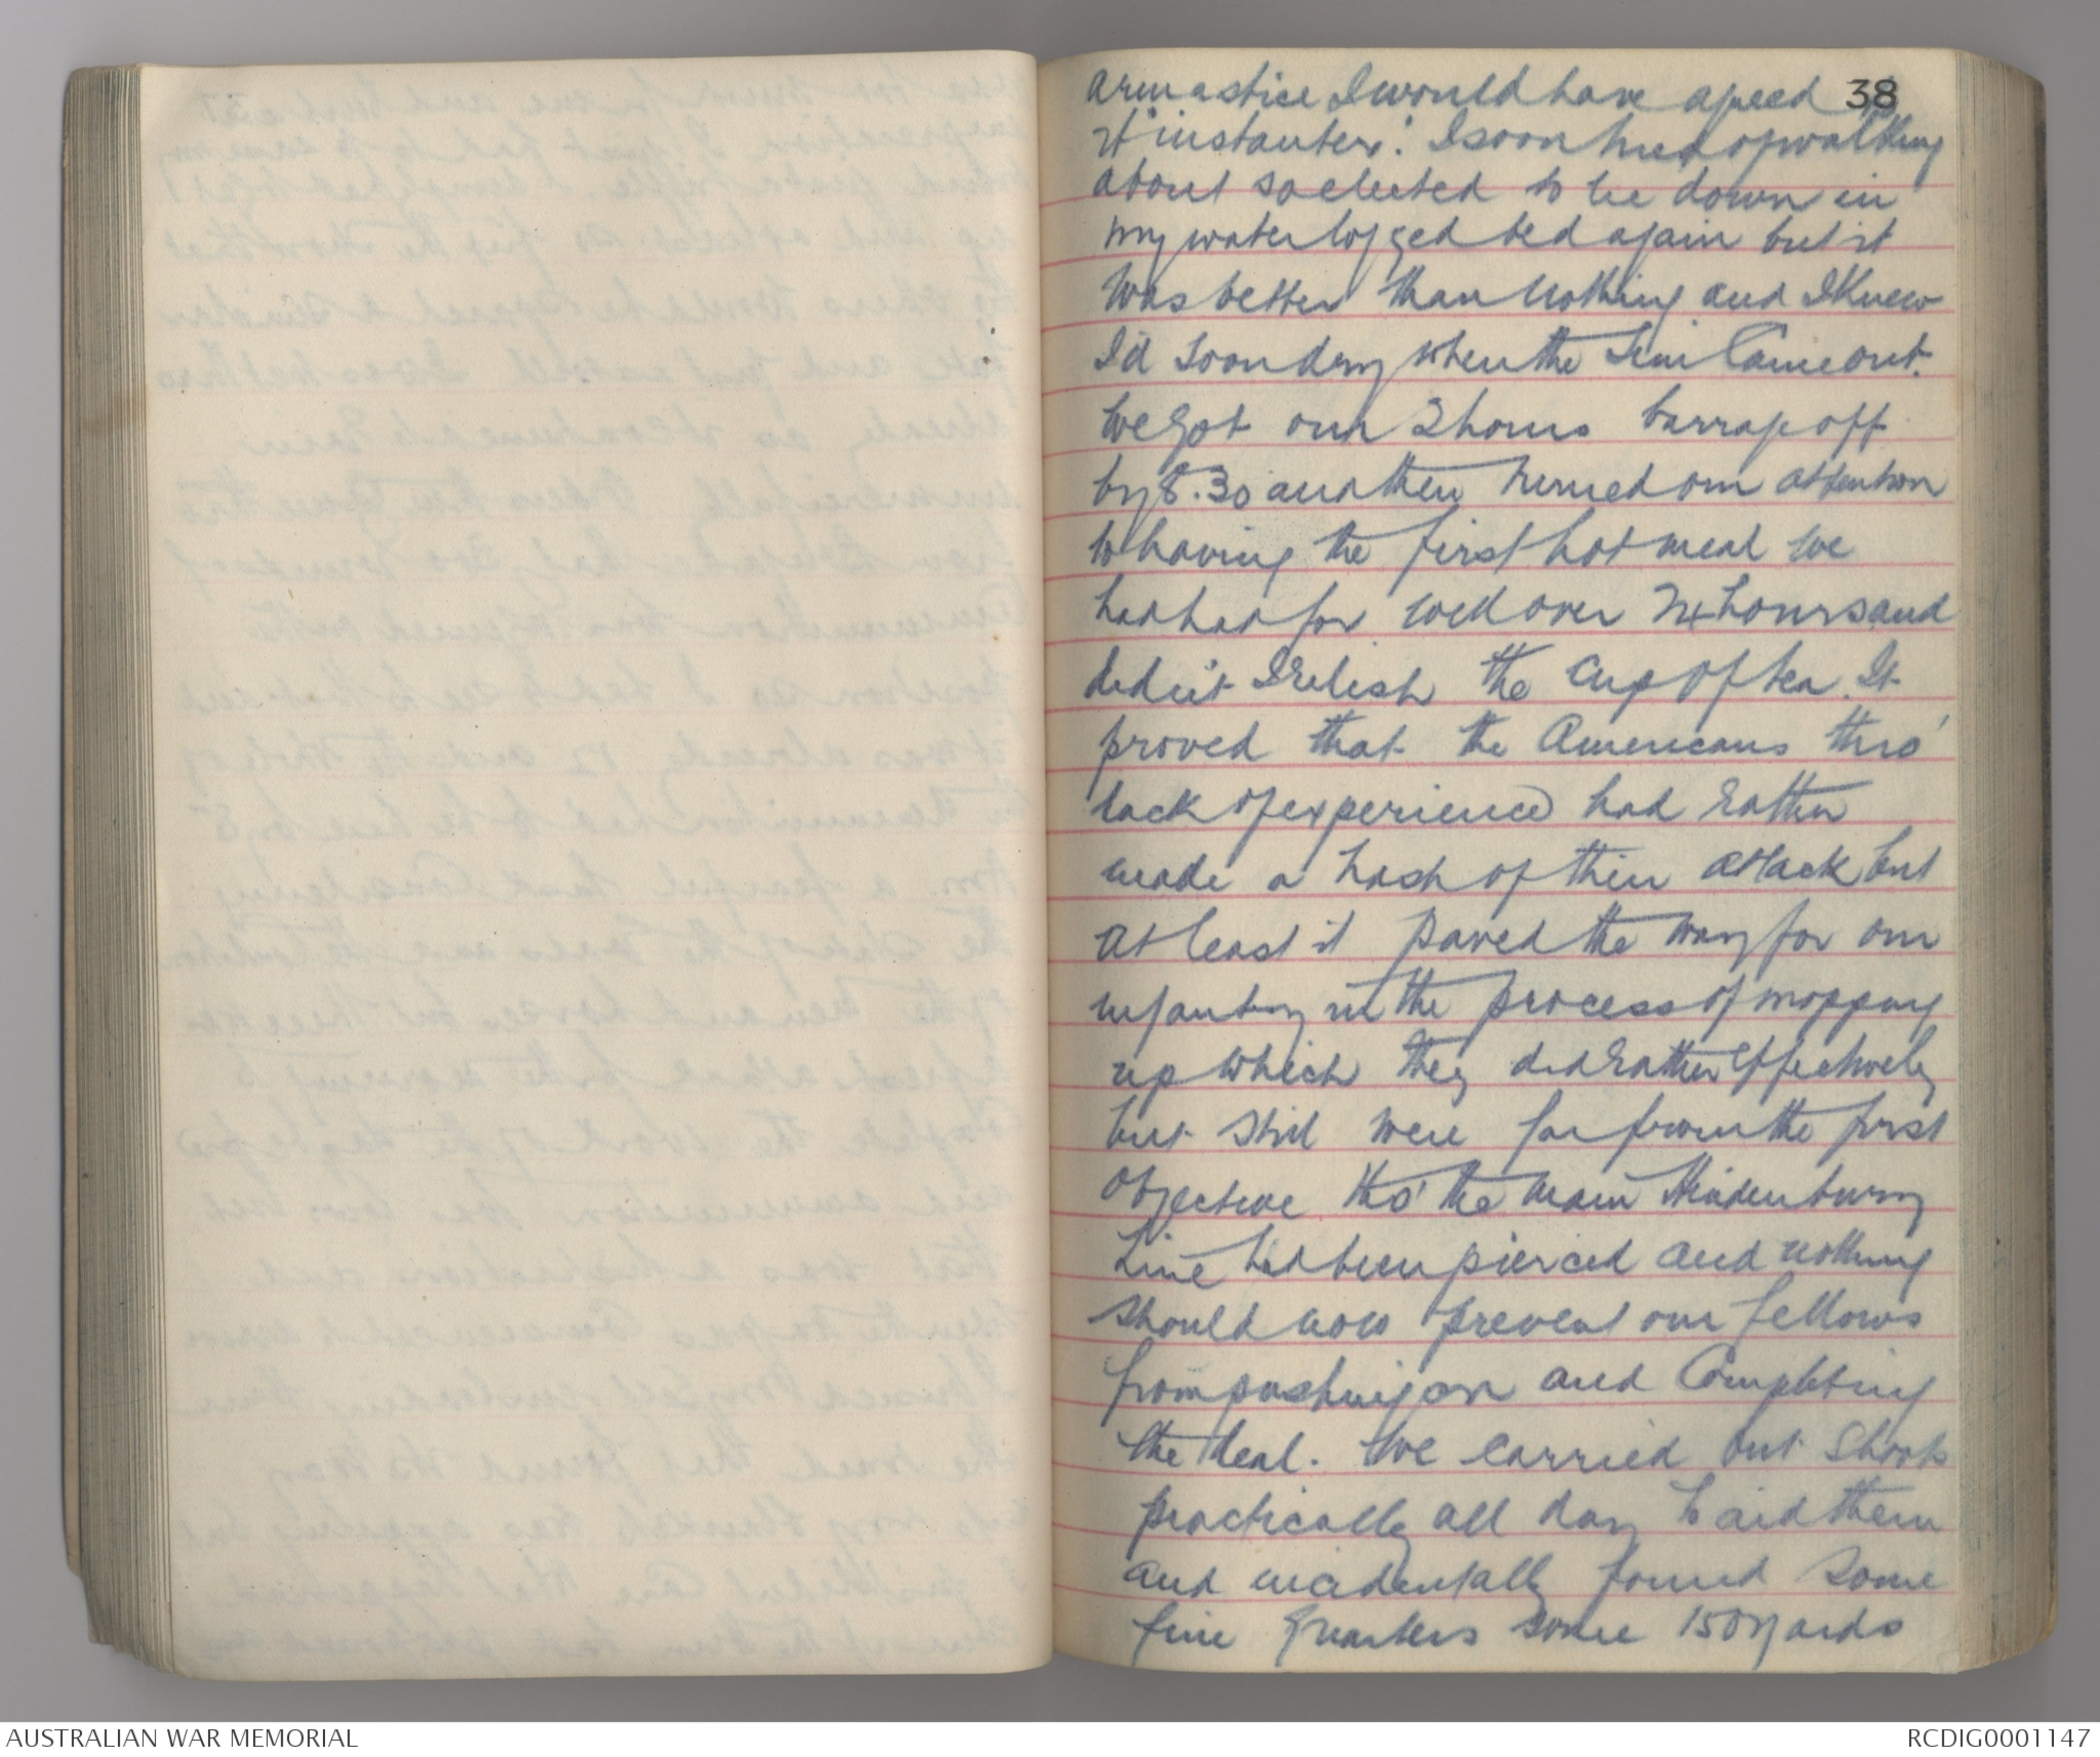 38
armastice I would have agreed to
it "instanter". I soon tired of walking
about so elected to lie down in
my waterlogged bed again but it
was better than nothing and I knew
I'd soon dry when the Sun Came out.
We got our 2 hours barrage off
by 8.30 and then turned our attention
to having the first hot meal we
had had for well over 24 hours and
didn't I relish the Cup of tea. It
proved that the Americans thro'
lack of experience had rather
made a hash of their attack but
at least it paved the way for our
infantry in the process of mopping
up which they did rather effectively
but still were far from the first
objective tho' the main Hindenburg
Line had been pierced and nothing
should now prevent our fellows
from pushing on and Completing
the deal. We carried out shoots
practically all day to aid them
and incidentally found some
fine quarters some 150 yards
AUSTRALIAN WAR MEMORIAL
RCDIG0001147